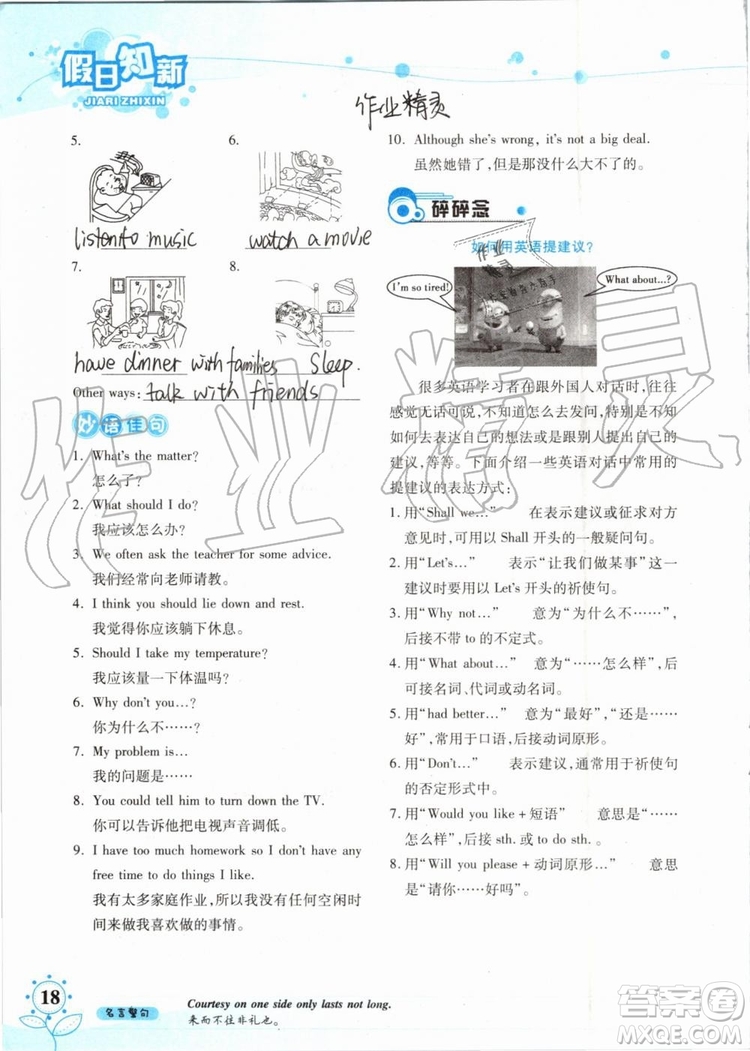 假日知新
JIARI ZHIXIN
作业精灵
5.
6.
listen to music
watch a movie
7.
8.
have dinner with families
Sleep.
Other ways: talk with friends
妙语佳句
1. What's the matter?
怎么了?
2. What should I do?
我应该怎么办?
3. We often ask the teacher for some advice.
我们经常向老师请教。
4. I think you should lie down and rest.
我觉得你应该躺下休息。
5. Should I take my temperature?
我应该量一下体温吗?
6. Why don't you…?
你为什么不……
7. My problem is…
我的问题是……
8. You could tell him to turn down the TV.
你可以告诉他把电视声音调低。
9. I have too much homework so I don't have any
free time to do things I like.
我有太多家庭作业,所以我没有任何空闲时
间来做我喜欢做的事情。
10. Although she's wrong, it's not a big deal.
虽然她错了,但是那没什么大不了的。
碎碎念
如何用英语提建议?
作业
精灵
I'm so tired!
What about…?
很多英语学习者在跟外国人对话时,往往
感觉无话可说,不知道怎么去发问,特别是不知
如何去表达自己的想法或是跟别人提出自己的
建议,等等。下面介绍一些英语对话中常用的
提建议的表达方式:
1. 用“Shall we…” 在表示建议或征求对方
意见时,可以用以 Shall 开头的一般疑问句。
2. 用“Let's…” 表示“让我们做某事”这一
建议时可以用以 Let's 开头的祈使句。
3. 用“Why not…” 意为“为什么不……”,
后接不带 to 的不定式。
4. 用“What about…” 意为“……怎么样”,后
可接名词、代词或动名词。
5. 用“had better…” 意为“最好”,“还是……
好”,常用于口语,后接动词原形。
6. 用“Don't…” 表示建议,通常用于祈使句
的否定形式中。
7. 用“Would you like + 短语” 意思是“……
怎么样”,后接 sth. 或 to do sth.
8. 用“Will you please + 动词原形…” 意思
是“请你……好吗”。
作业精灵
18
名言警句
Courtesy on one side only lasts not long.
来而不往非礼也。
答案圈
MXQE.COM